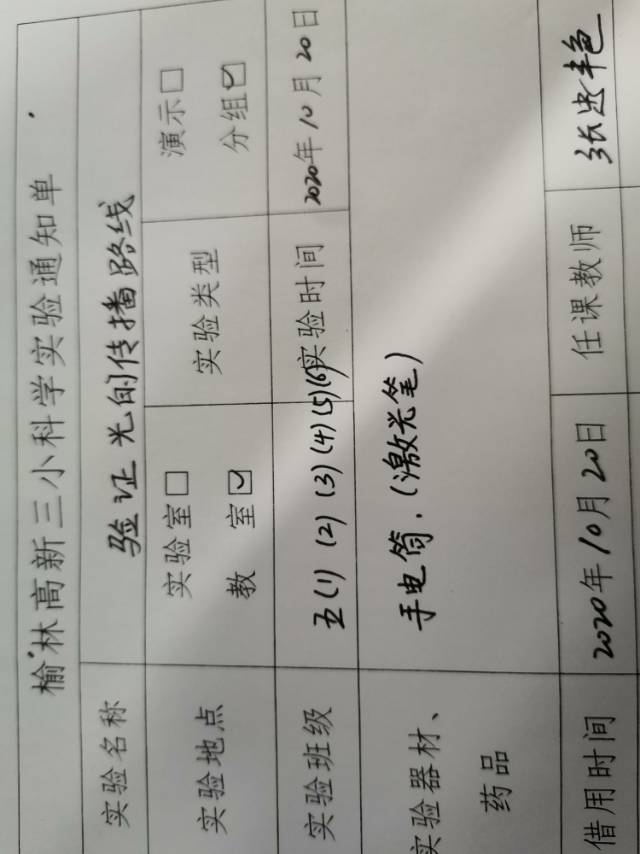 榆林高新三小科学实验通知单
实验名称 验证光的传播路线
实验地点 实验室□ 教 室☑ 实验类型 演示□ 分组☑
实验班级 五(1)(2)(3)(4)(5)(6) 实验时间 2020年10月20日
实验器材、药品 手电筒.(激光笔)
借用时间 2020年10月20日 任课教师 张